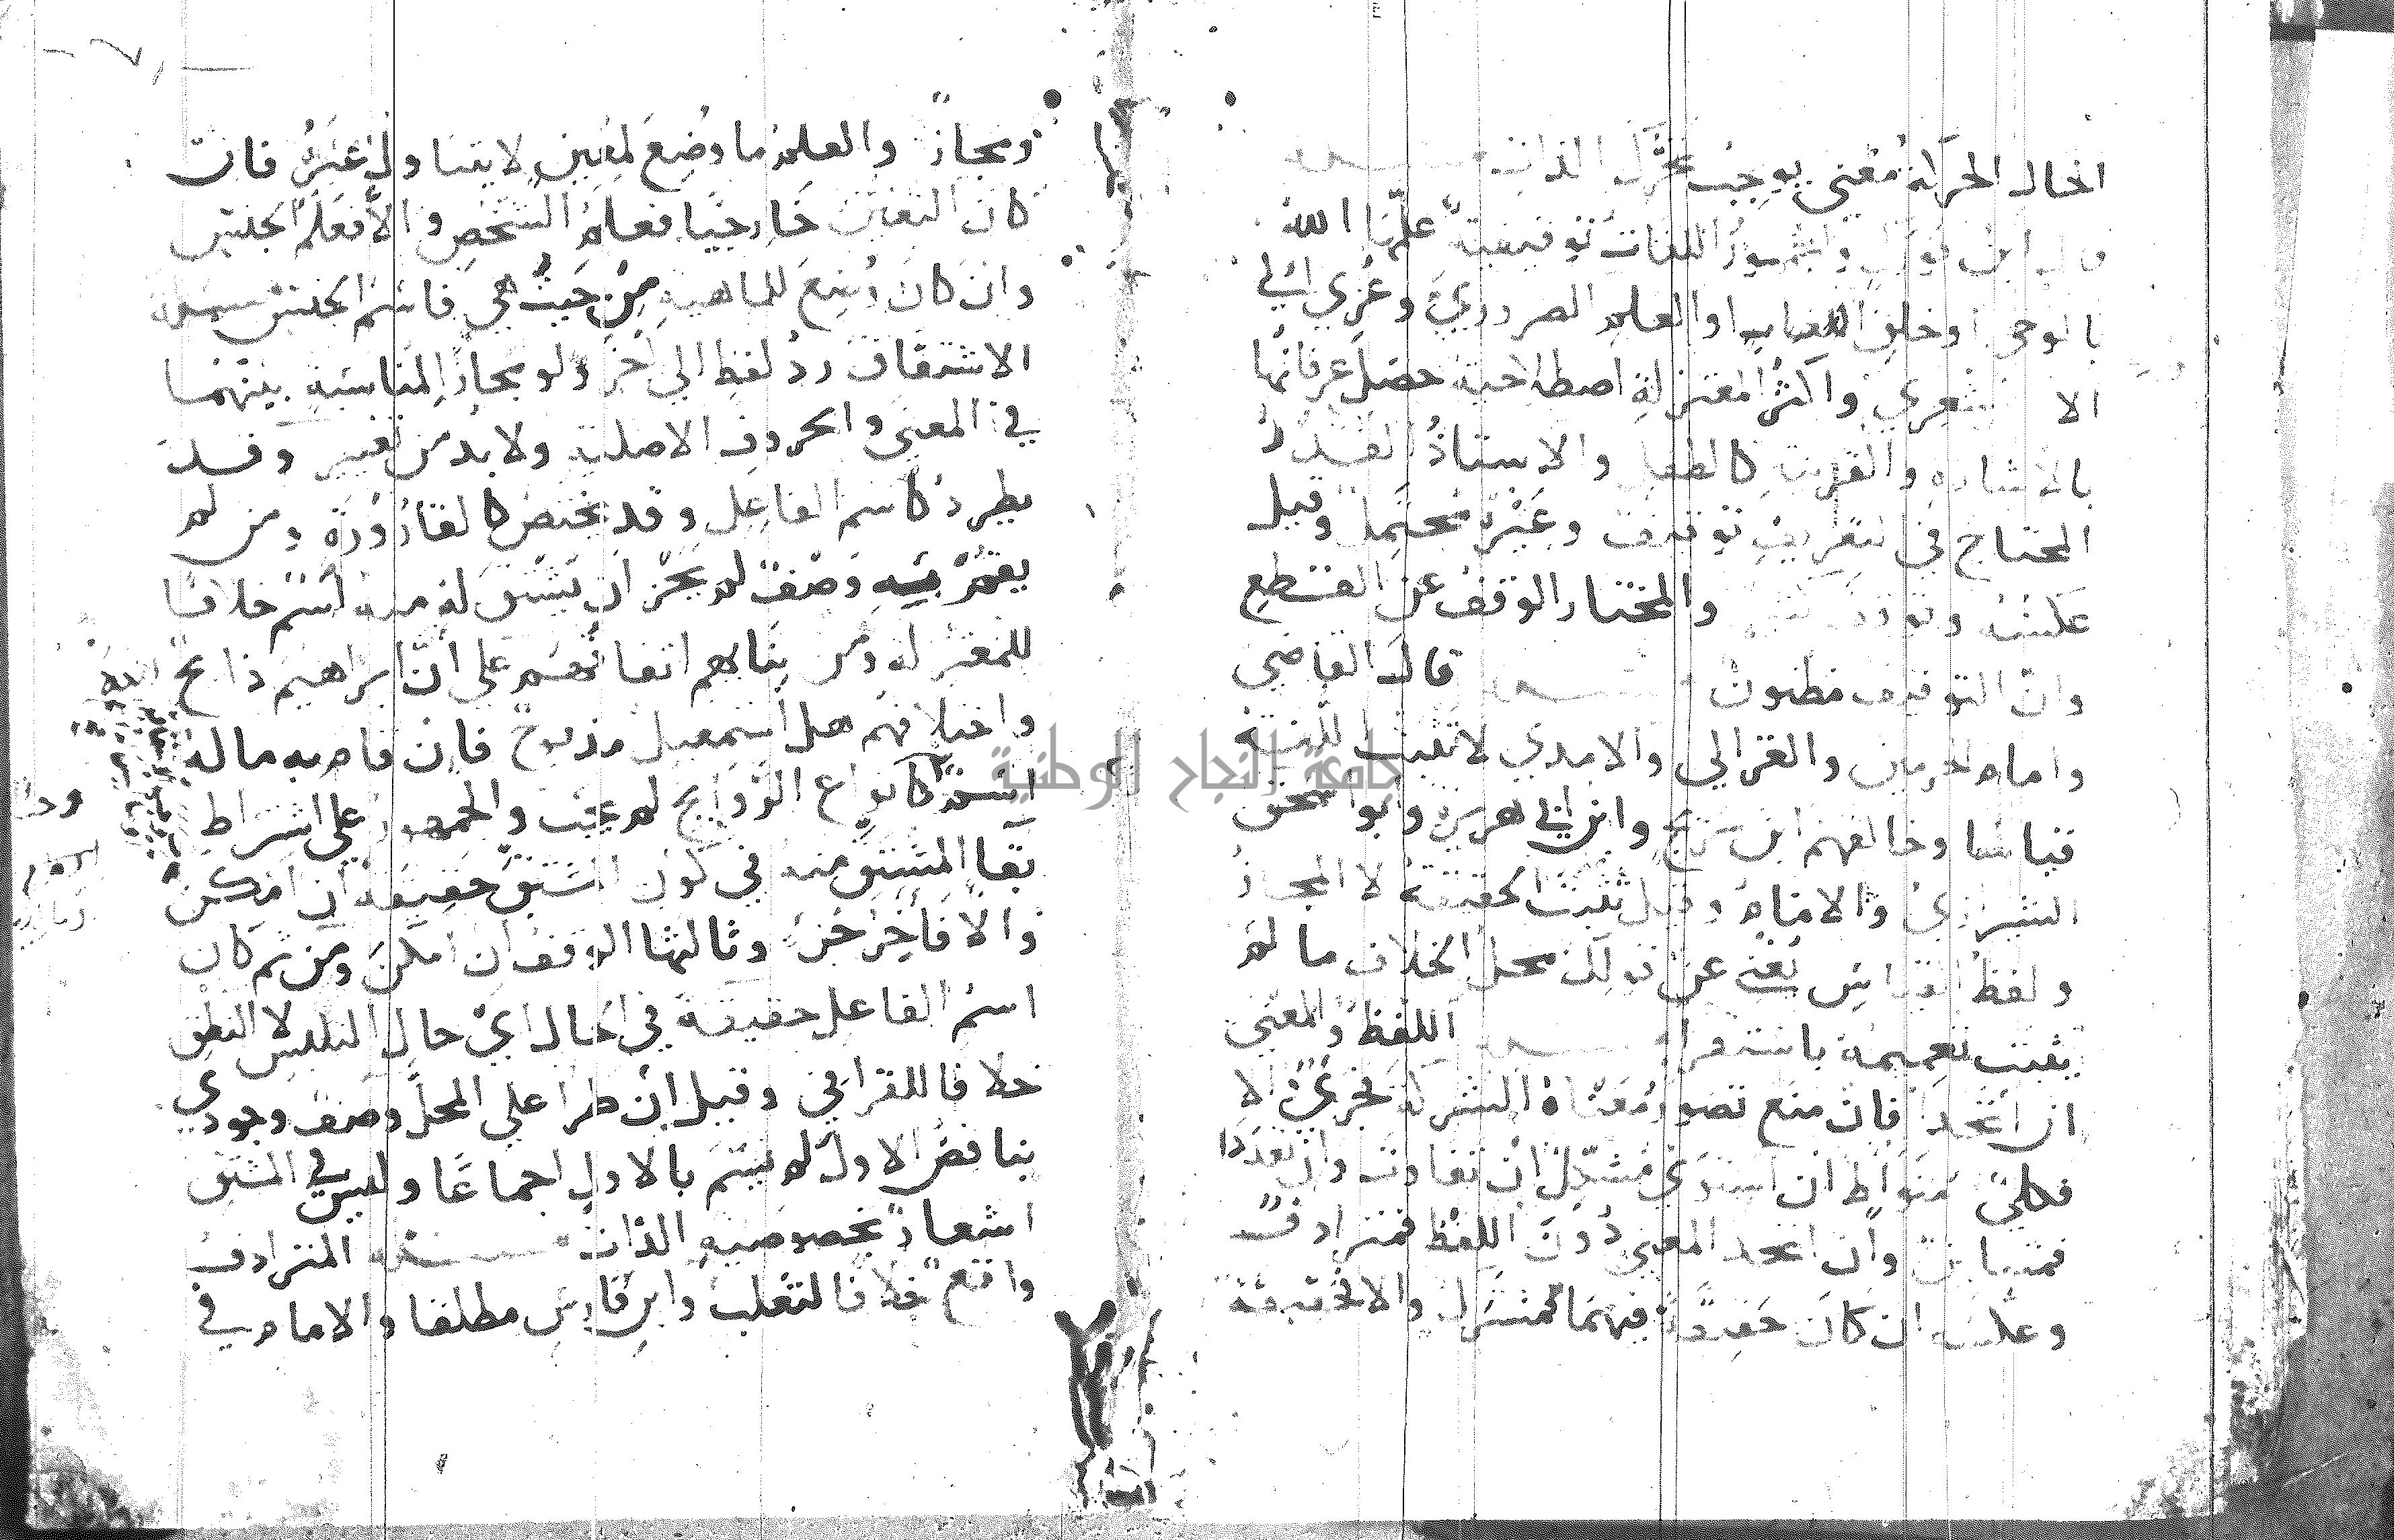 الحال الحركة معنى يوجب تحرك الذات
قال ابن فورك والجمهور اللغات توقيفية علمها الله
بالوحى او خلق اللغات او العلم الضروري وعزي الى
الاشعري واكثر المعتزلة اصطلاحية حصل عرفانها
بالاشارة والقرينة كالطفل والاستاذ القدر
المحتاج في التعريف توقيف وغيره محتمل وقيل
عكسه وتوقف والمختار الوقف عن القطع
وان التوقيف مظنون قال القاضي
وامام الحرمين والغزالي والامدي لا تثبت اللغة
قياسا وخالفهم ابن سريج وابن ابي هريرة وابو اسحق
الشيرازي والامام وقيل تثبت الحقيقة لا المجاز
ولفظ القياس يغني عن قولك محل الخلاف ما لم
يثبت تعميمه باستقراء اللفظ والمعنى
ان اتحدا فان منع تصور معناه الشركة فجزئي والا
فكلي متواط ان استوى مشكك ان تفاوت وان تعددا
فمتباين وان اتحد المعنى دون اللفظ فمترادف
وعكسه ان كان حقيقة فيهما فمشترك والا فحقيقة
ومجاز والعلم ما وضع لمعين لا يتناول غيره فان
كان التعين خارجيا فعلم الشخص والا فعلم الجنس
وان كان وضع للماهية من حيث هي فاسم الجنس مسئلة
الاشتقاق رد لفظ الى اخر ولو مجازا لمناسبة بينهما
في المعنى والحروف الاصلية ولا بد من تغيير وقد
يطرد كاسم الفاعل وقد يختص كالقارورة ومن لم
يقم به وصف لم يجز ان يشتق له منه اسم خلافا
للمعتزلة ومن بنائهم اتفاقهم على ان ابراهيم ذابح
واختلافهم هل اسمعيل مذبوح فان قام به ما له
اسم كانواع الروايح لم يجب والجمهور على اشتراط
بقا المشتق منه في كون المشتق حقيقة ان امكن
والا فاخر جزء وثالثها الوقف ان امكن ومن ثم كان
اسم الفاعل حقيقة في الحال اي حال التلبس لا النطق
خلافا للقرافي وقيل ان طرا على المحل وصف وجودي
يناقض الاول لم يسم بالاول اجماعا وليس في المشتق
اشعار بخصوصية الذات مسئلة المترادف
واقع خلافا لثعلب وابن فارس مطلقا والامام في
جامعة النجاح الوطنية